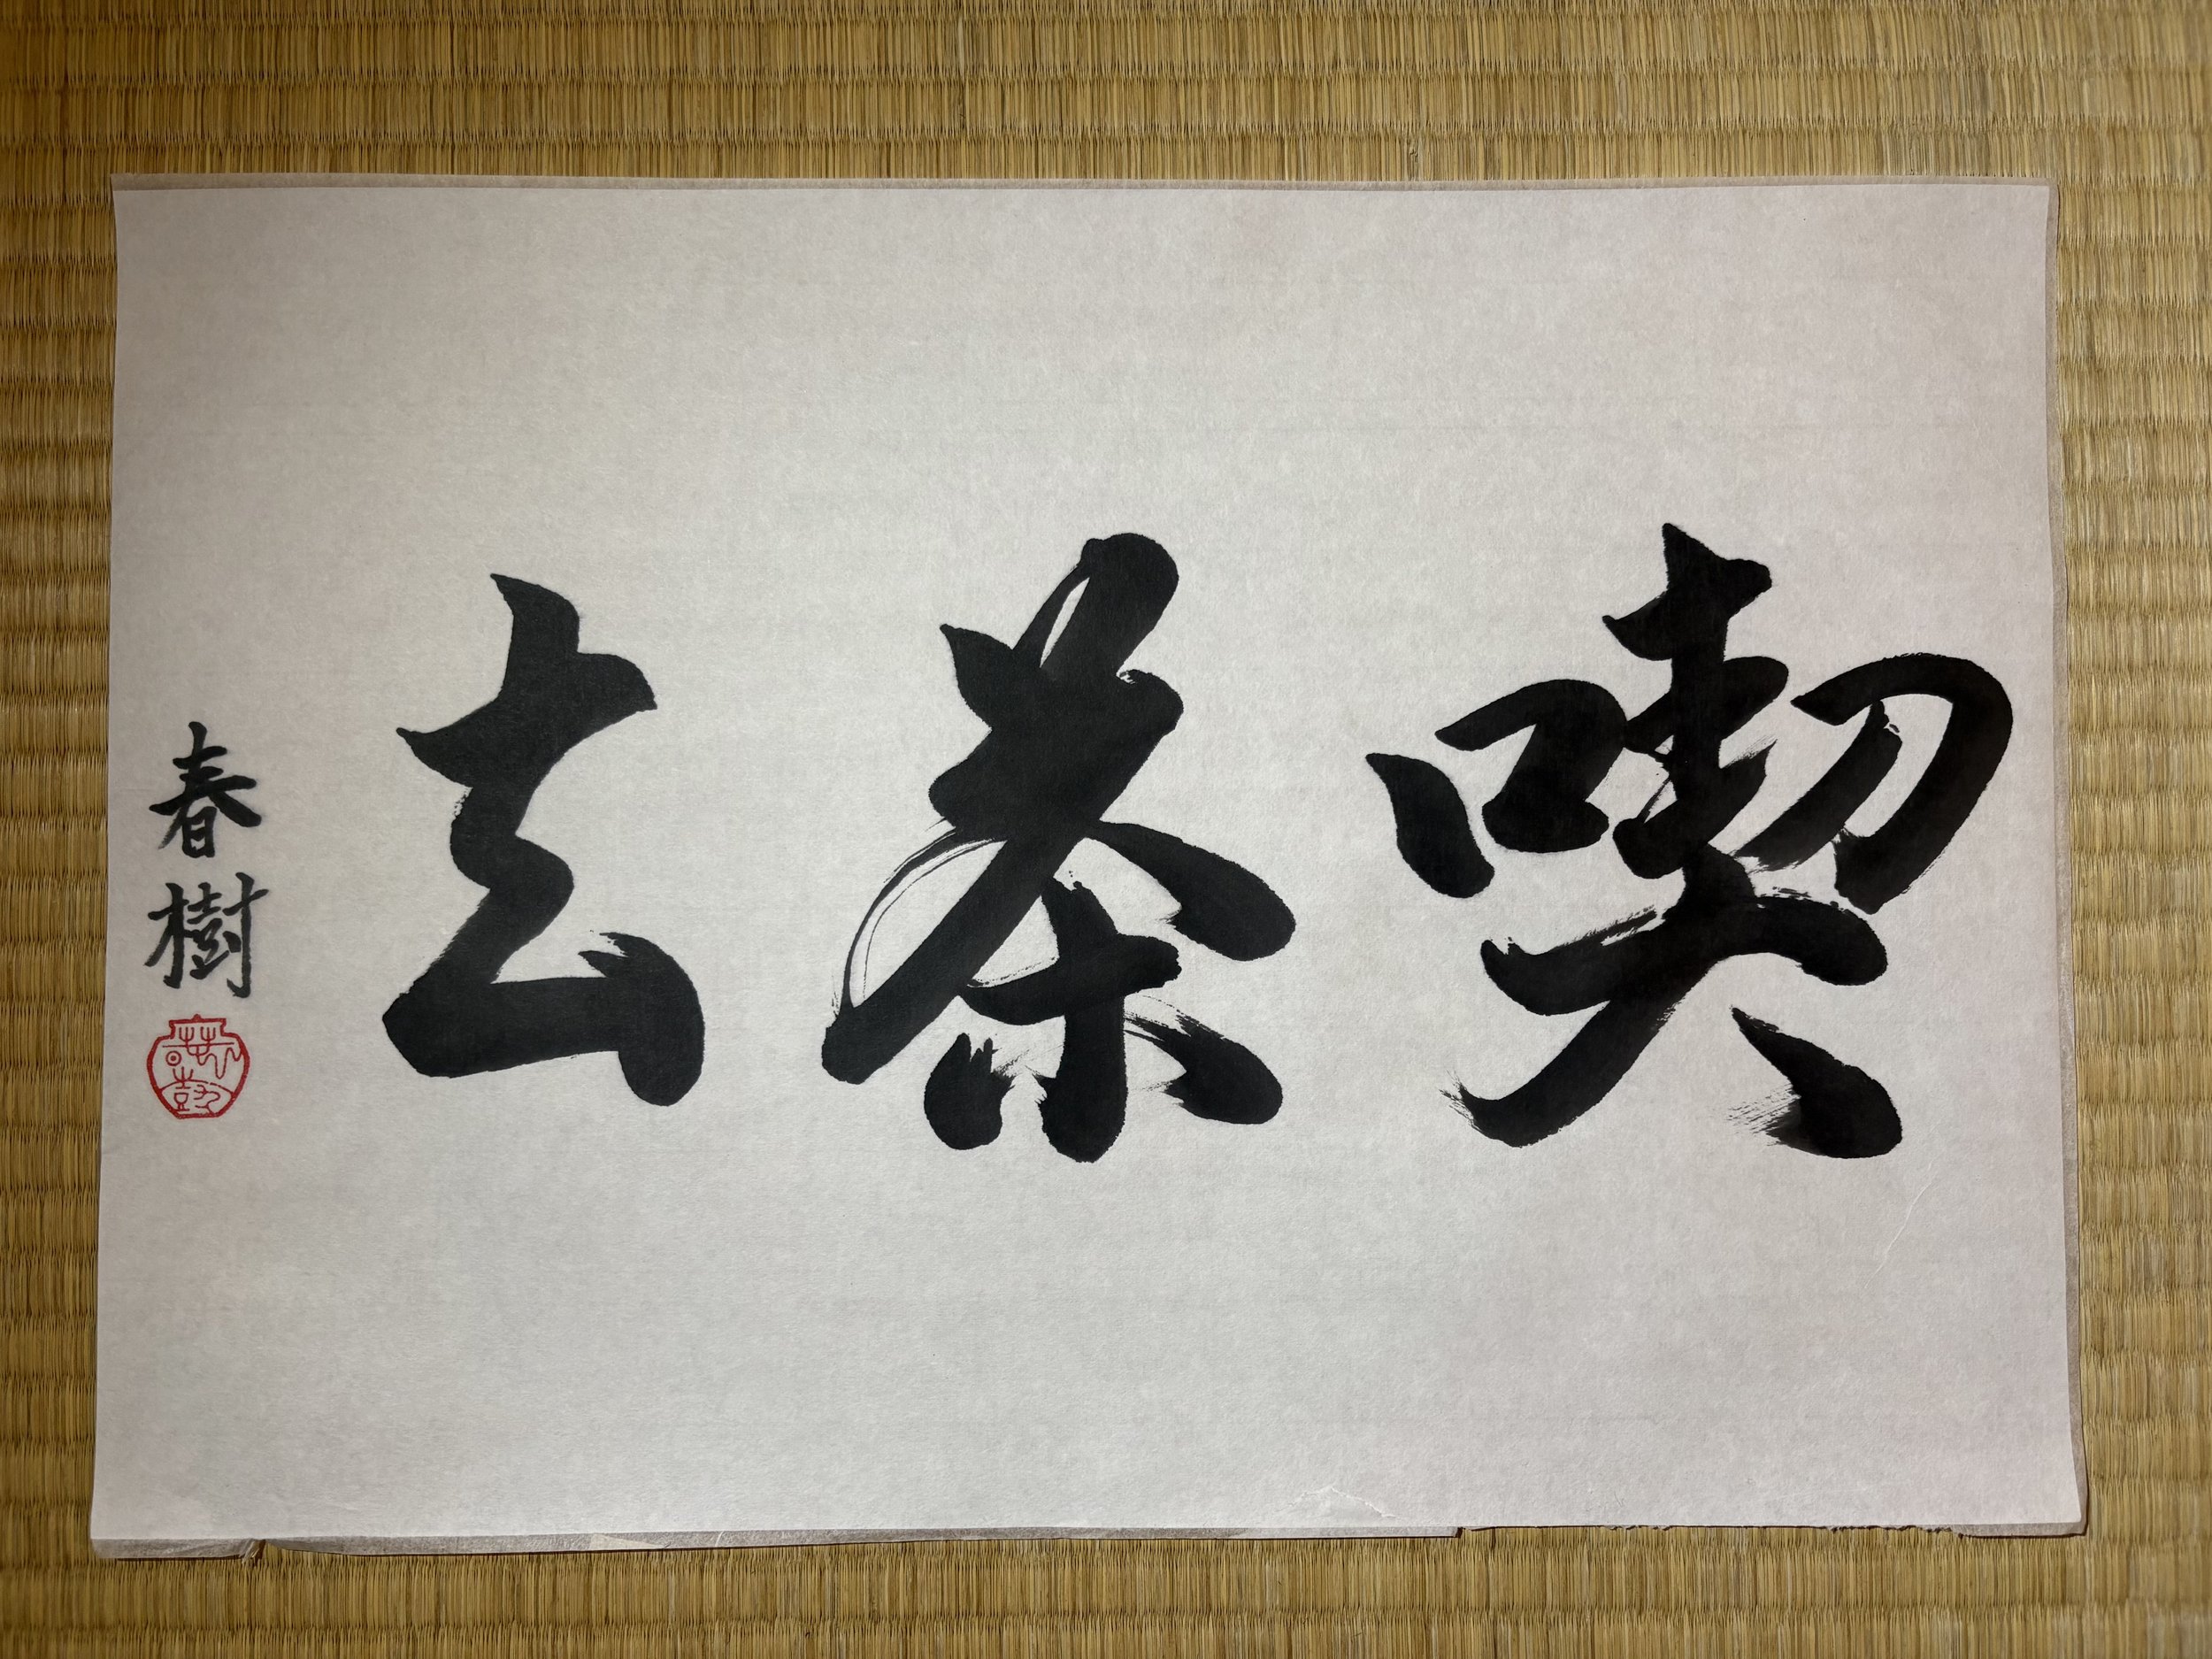 喫茶去
春樹